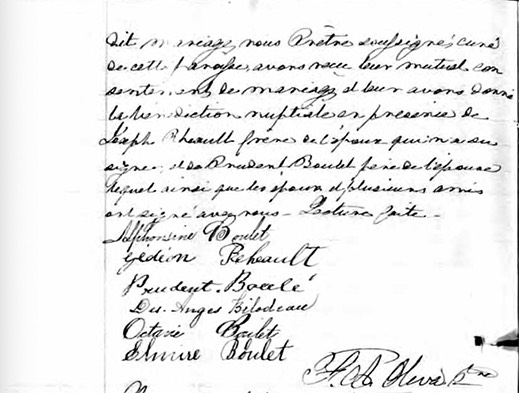 dit mariage, nous Prêtre soussigné, curé
de cette paroisse, avons reçu leur mutuel con
sentement de mariage et leur avons donné
la bénédiction nuptiale en présence de
Joseph Rheault frère de l'époux qui n'a su
signer, et de Prudent Boulet père de l'épouse
lequel ainsi que les époux et plusieurs amis
ont signé avec nous - Lecture faite -
Alphonsine Boulet
Gédéon Reheault
Prudent Boulé
Des-Anges Bilodeau
Octavie Boulet
Elmire Boulet
Ptre